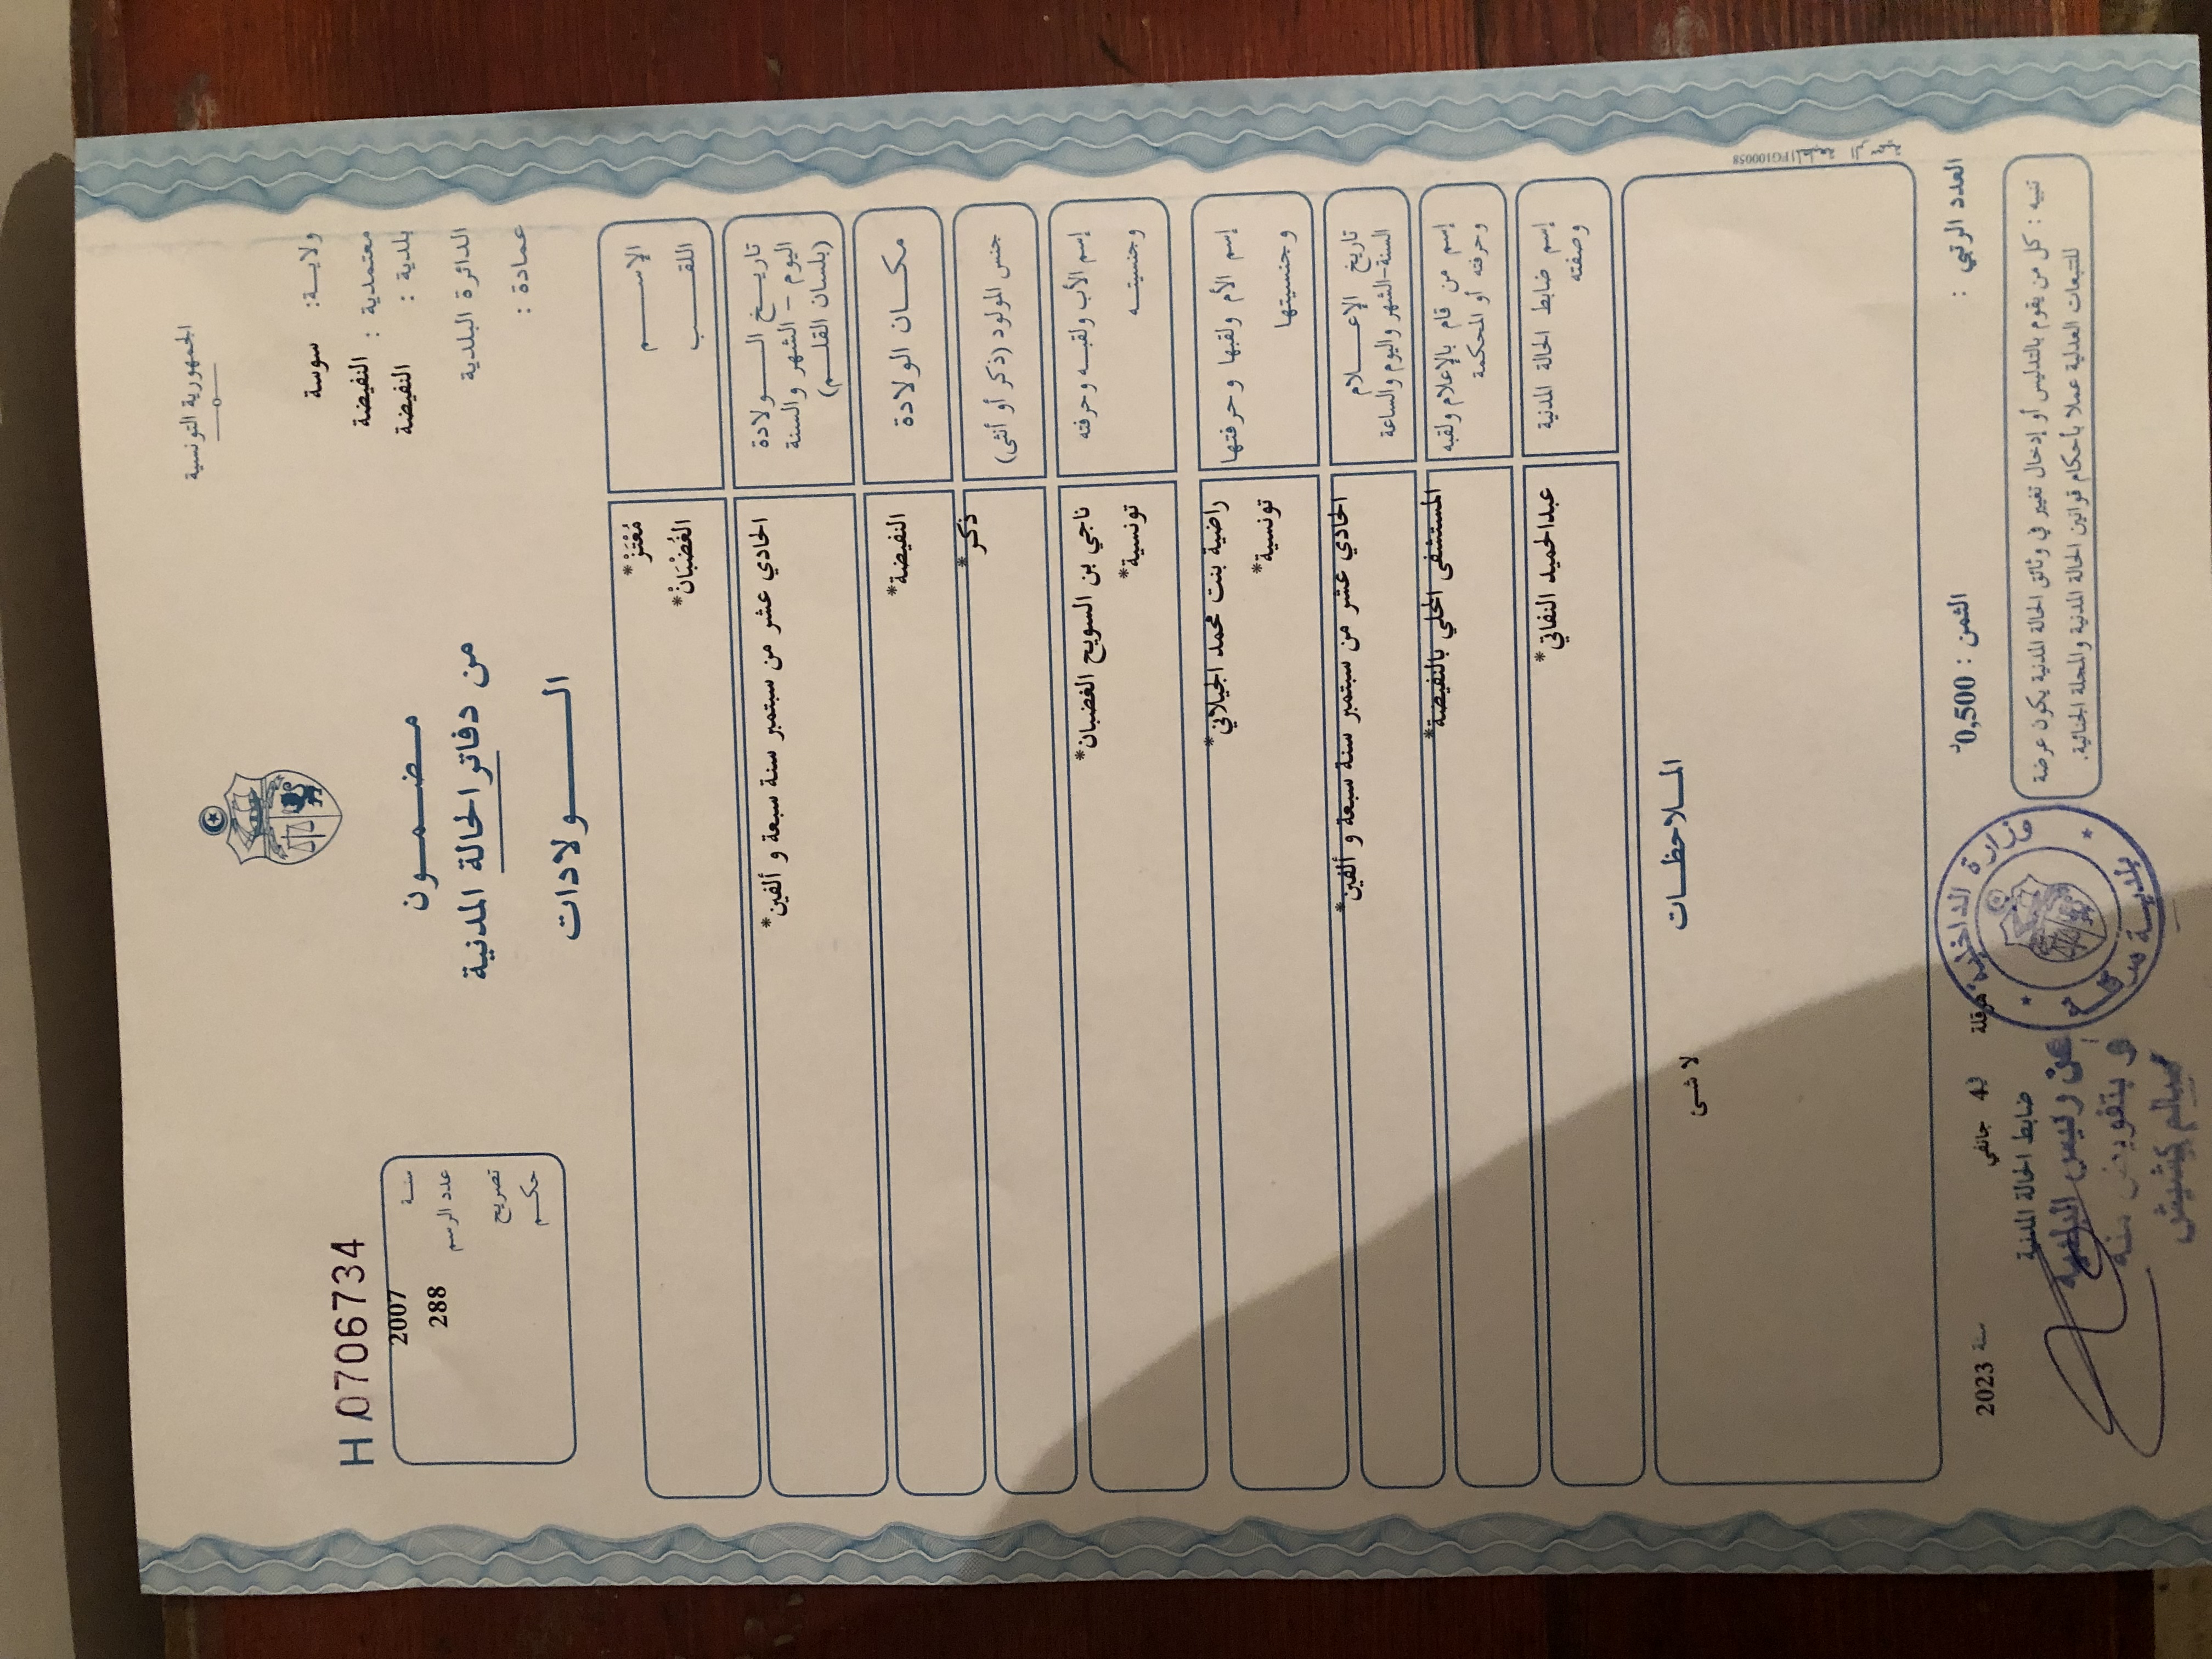 الجمهورية التونسية
ولايــة: سوسة
معتمدية : النفيضة
بلدية : النفيضة
الدائرة البلدية
عمادة :
مـضـمـــون
من دفاتر الحالة المدنية
الــــــولادات
H 0706734
سنـة 2007
عدد الرسم 288
تصريح
حكـم
الإســـــم مُعْتَزْ*
اللقـــــب الغُضْبَانْ*
تاريــخ الـــــولادة
اليوم - الشهر والسنة
(بلسان القلـــم)
الحادي عشر من سبتمبر سنة سبعة و ألفين*
مكــان الولادة النفيضة*
جنس المولود (ذكر أو أنثى) ذكر*
إسم الأب ولقبــه وحرفته ناجي بن السويح الغضبان*
وجنسيتــه تونسية*
إسم الأم ولقبها وحرفتها راضية بنت محمد الجيلاني*
وجنسيتها تونسية*
تاريخ الإعـــلام
السنة-الشهر واليوم والساعة
الحادي عشر من سبتمبر سنة سبعة و ألفين*
إسم من قام بالإعلام ولقبه
وحرفته أو المحكمة
المستشفى المحلي بالنفيضة*
إسم ضابط الحالة المدنية
وصفته
عبدالحميد النفاتي*
المــلاحظــات
لا شئ
FG100058
العدد الرتبي :
الثمن : 0,500د
هرقلة في 4 جانفي سنة 2023
ضابط الحالة المدنية
تنبيه : كل من يقوم بالتدليس أو إدخال تغيير في وثائق الحالة المدنية يكون عرضة
للتتبعات العدلية عملا بأحكام قوانين الحالة المدنية والمجلة الجنائية.
وزارة الداخلية
عن رئيس البلدية
و بتفويض منه
سالم كشيش